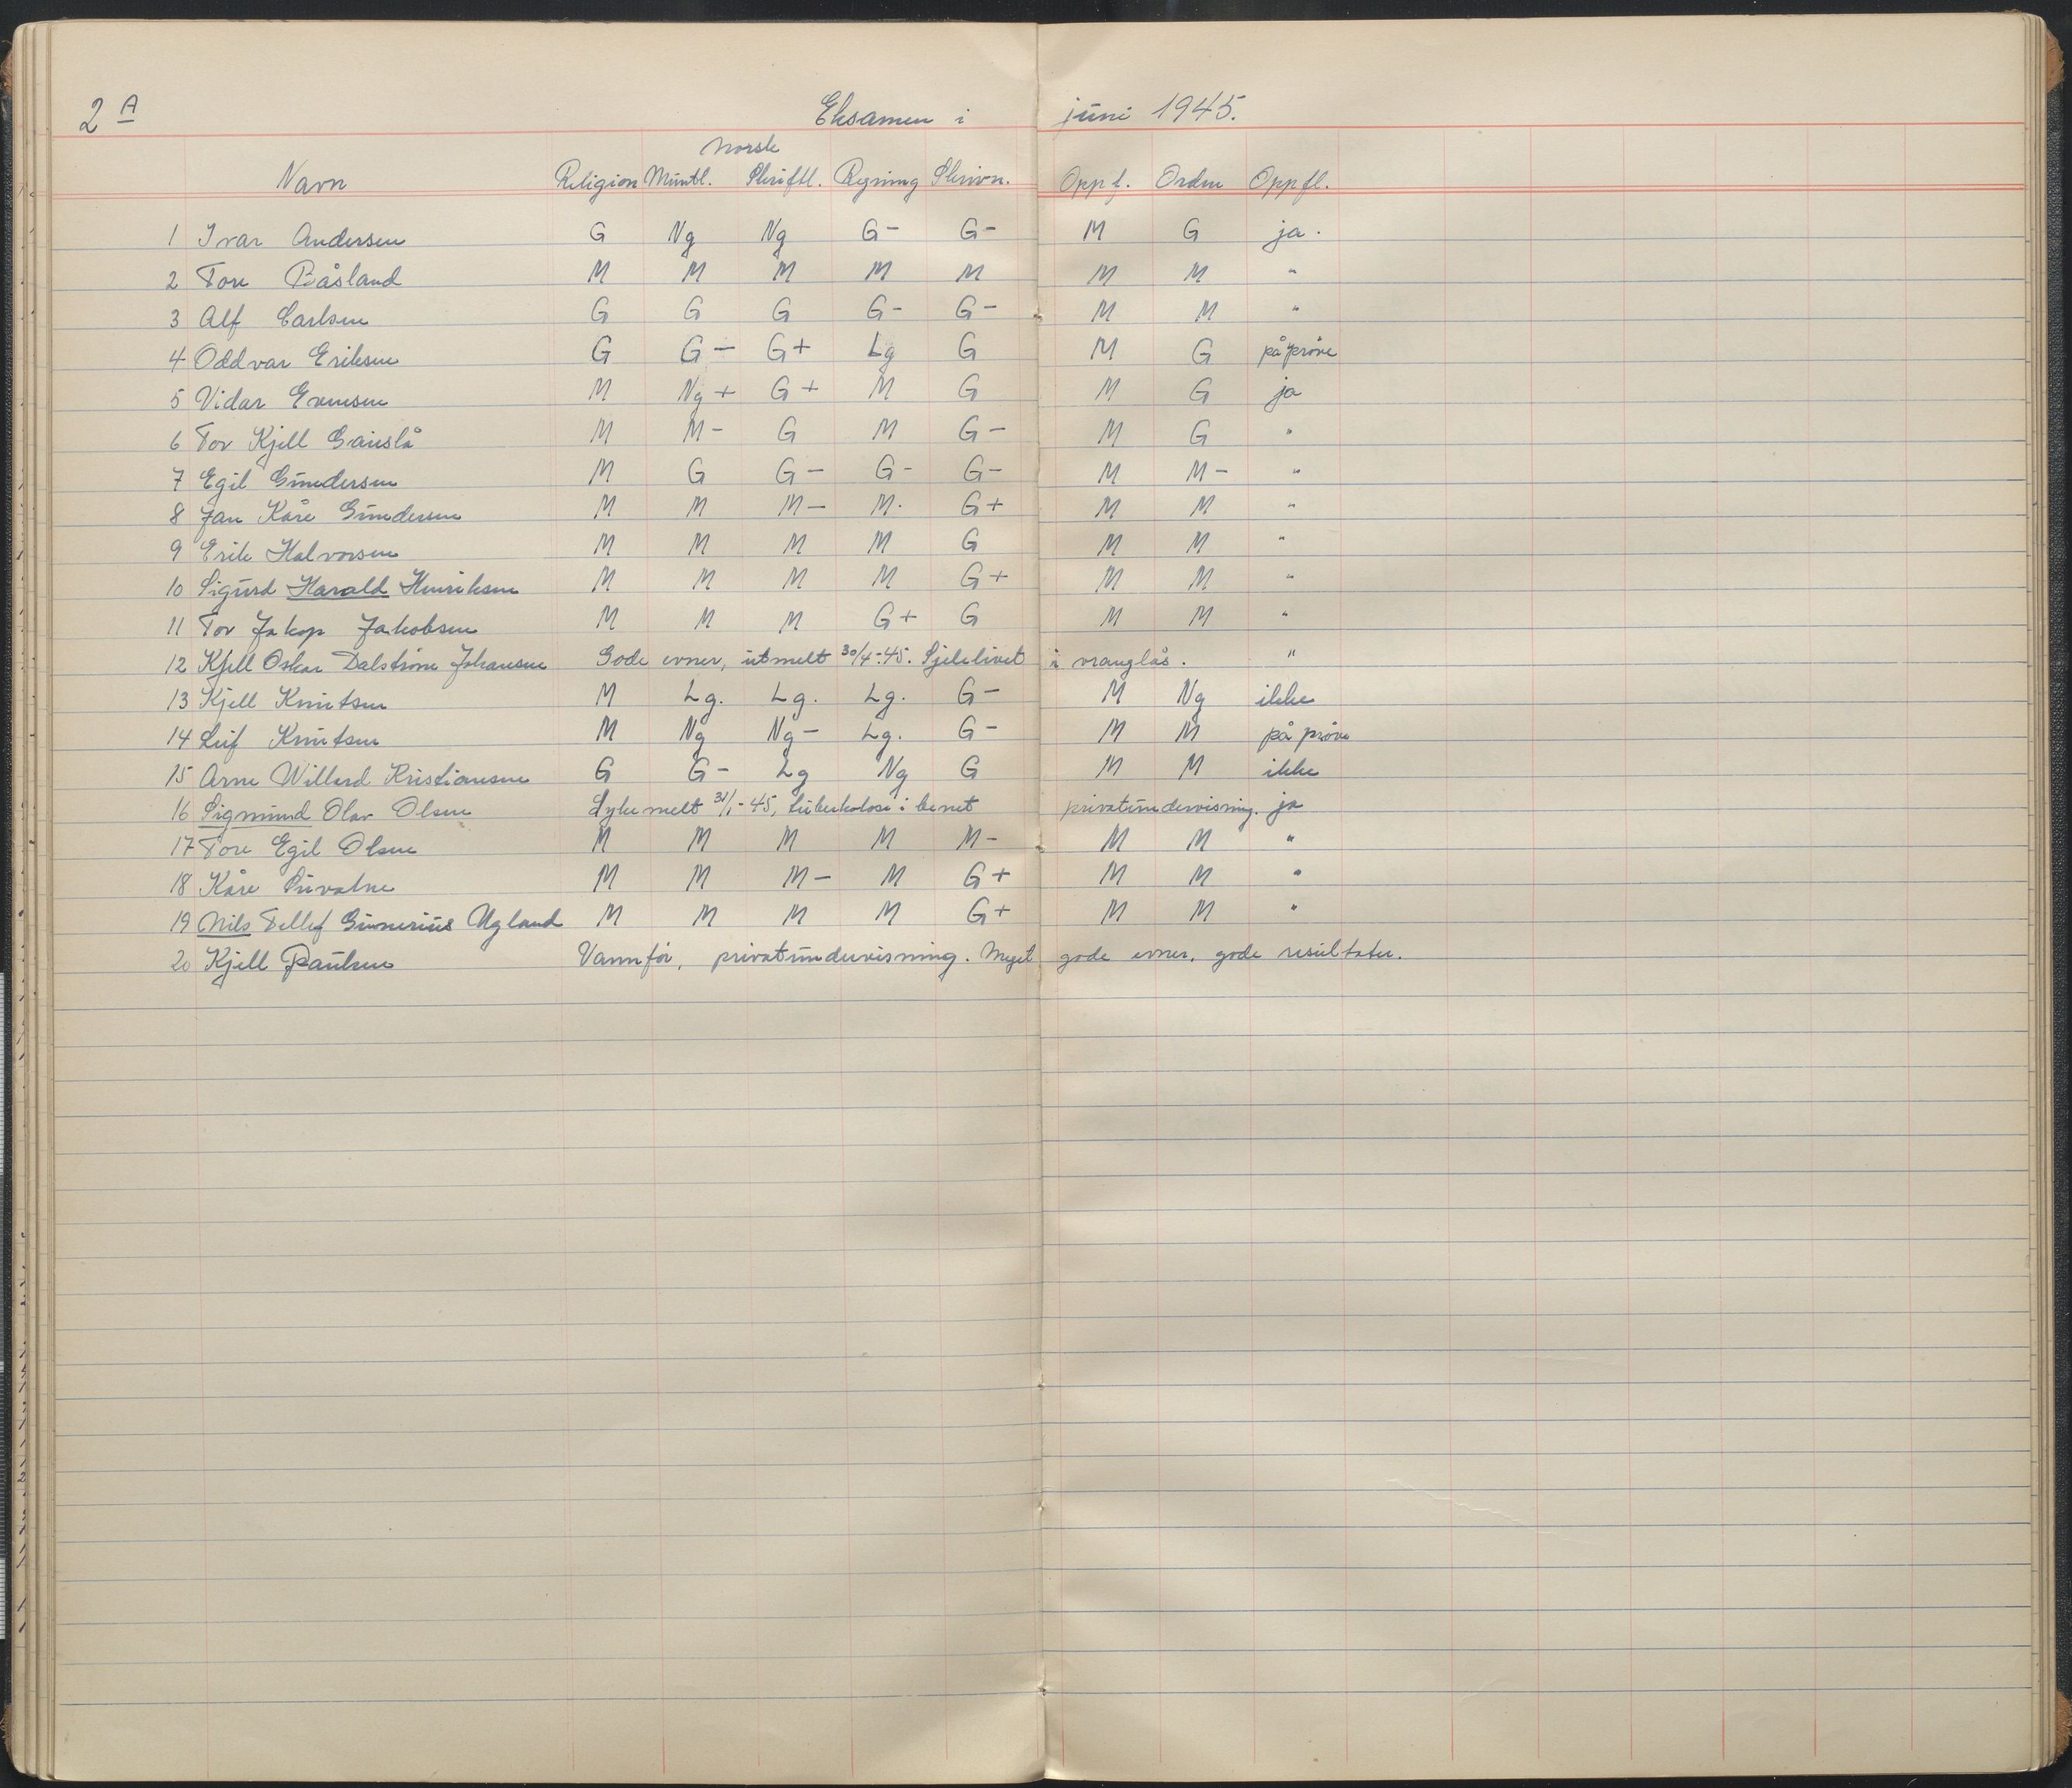 2 A Eksamen i juni 1945.
Norsk
Navn Religion Muntl. Skriftl. Regning Skrivn. Oppf. Orden Oppfl.
1 Ivar Andersen G Ng Ng G- G- M G ja.
2 Tore Båsland M M M M M M M "
3 Alf Carlsen G G G G- G- M M "
4 Oddvar Eriksen G G- G+ Lg G M G på prøve
5 Vidar Evensen M Ng+ G+ M G M G ja
6 Tor Kjell Gauslå M M- G M G- M G "
7 Egil Gundersen M G G- G- G- M M- "
8 Jan Kåre Gundersen M M M- M. G+ M M "
9 Erik Halvorsen M M M M G M M "
10 Sigurd Harald Henriksen M M M M G+ M M "
11 Tor Jakop Jakobsen M M M G+ G M M "
12 Kjell Oskar Dalstrøm Johansen Gode evner, utmelt 30/4-45. Sjelelivet i vranglås. "
13 Kjell Knutsen M Lg. Lg. Lg. G- M Ng ikke
14 Leif Knutsen M Ng Ng- Lg. G- M M på prøve
15 Arne Willard Kristiansen G G- Lg Ng G M M ikke
16 Sigmund Olav Olsen Sykemelt 31/1-45, tuberkolose i benet privatundervisning. ja
17 Tore Egil Olsen M M M M M- M M "
18 Kåre Suvatne M M M- M G+ M M "
19 Nils Tellef Gunnerius Ugland M M M M G+ M M "
20 Kjell Paulsen Vannfør, privatundervisning. Meget gode evner, gode resultater.